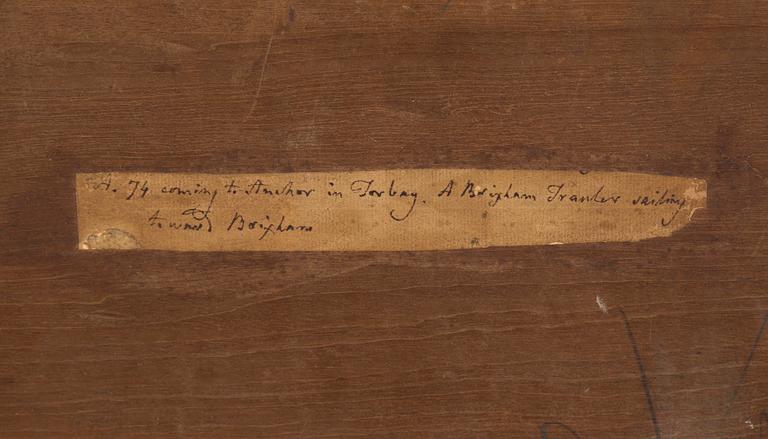 A. 74 coming to Anchor in Torbay. A Brixham Trawler sailing
toward Brixham